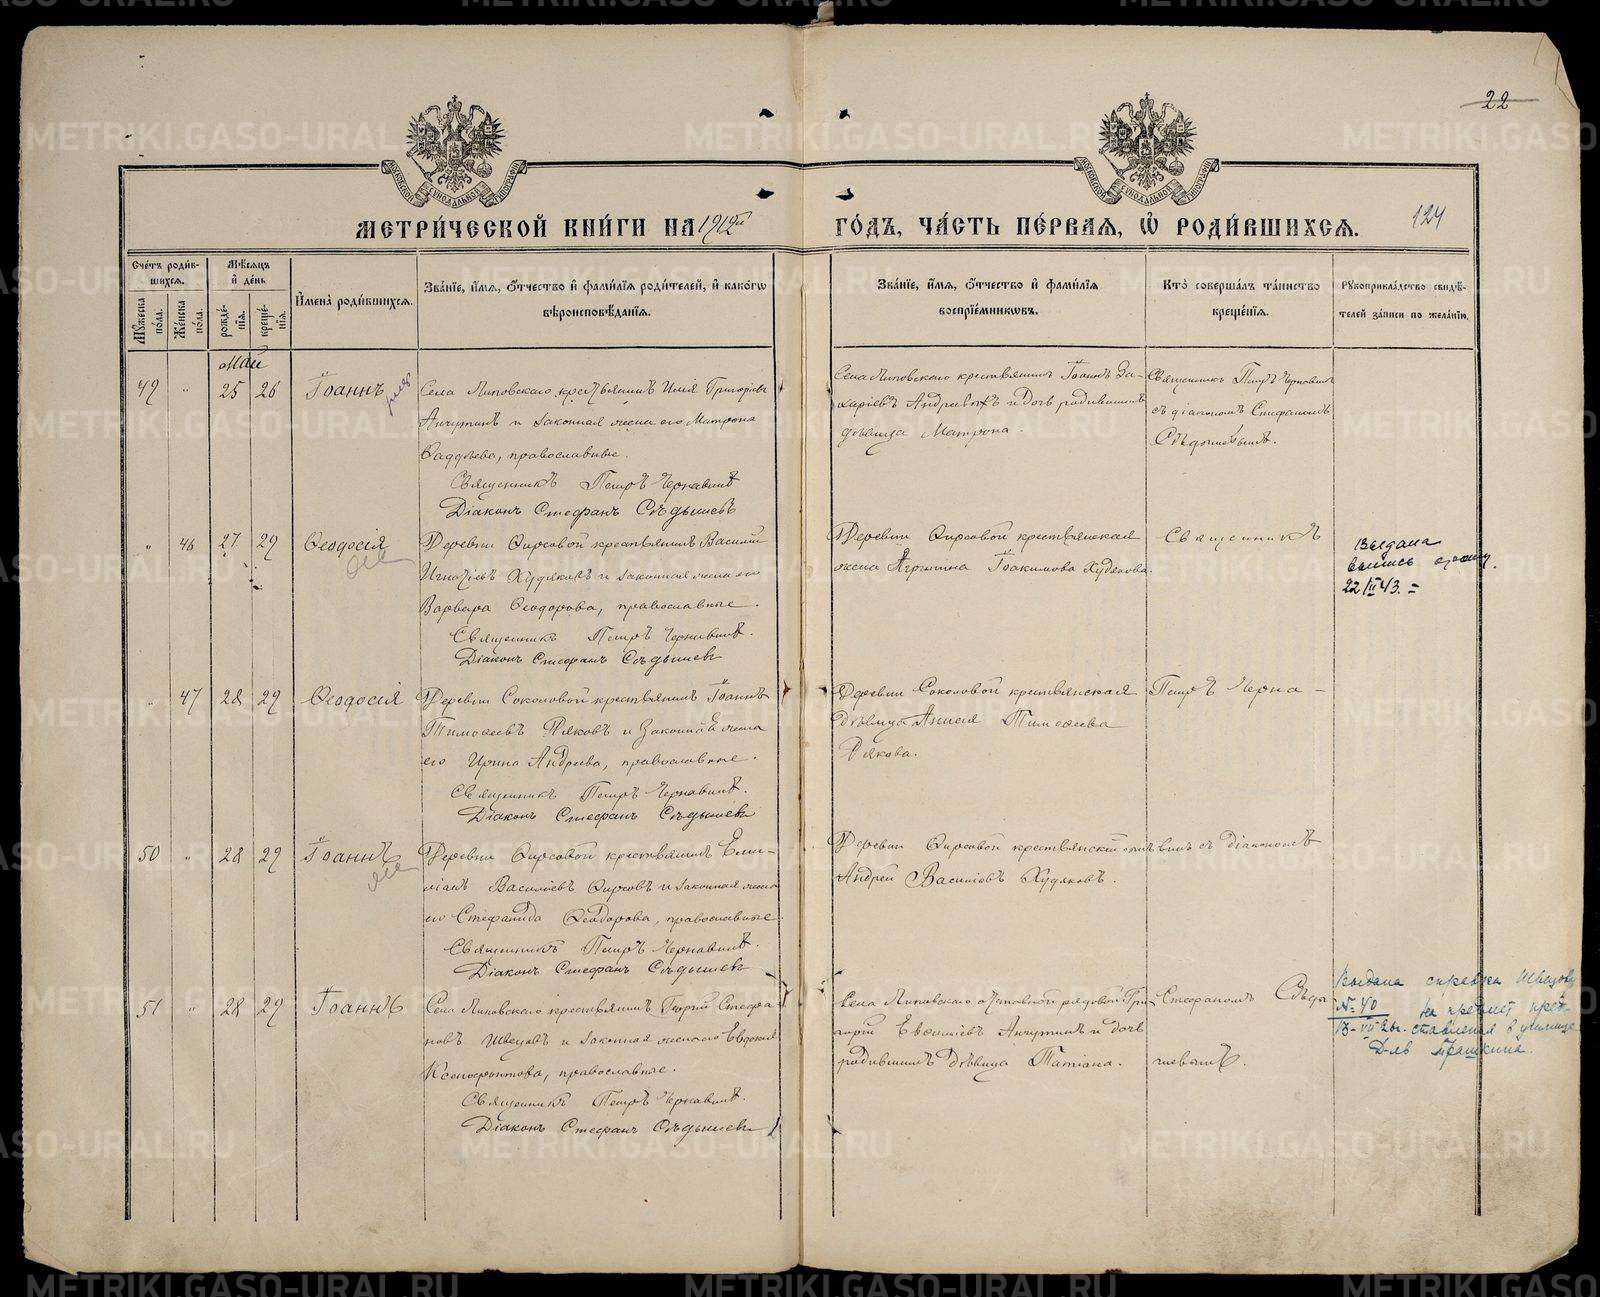 22
124
МЕТРИ́ЧЕСКОЙ КНИ́ГИ НА 1912й ГО́ДЪ, ЧА́СТЬ ПЕ́РВАЯ, Ѡ҆ РОДИ́ВШИХСЯ.
Сче́тъ роди́вшихся.
Мѣ́сяцъ и҆ де́нь
Мꙋ́жеска по́ла.
Же́нска по́ла.
рожде́нїѧ.
креще́нїѧ.
И҆мена̀ роди́вшихся.
Зва́нїе, и҆́мя, ѻ҆́тчество и҆ фами́лїя роди́телей, и҆ како́гѡ
вѣроисповѣ́данїя.
Зва́нїе, и҆́мя, ѻ҆́тчество и҆ фами́лїя
воспрїе́мникѡвъ.
Кто̀ соверша́лъ та́инство
креще́нїя.
Рꙋкоприкла́дство свидѣ́-
телей за́писи по жела́нїю.
Май
49 " 25 26 Іоаннъ
Села Липовскаго крестьянинъ Илія Григоріевъ
Анчутинъ и законная жена его Матрона
Фаддѣева, православные.
Священникъ Петръ Чернавинъ
Діаконъ Стефанъ Сѣдышевъ
Села Липовскаго крестьянинъ Іоаннъ За-
харіевъ и дочь родившихъ
дѣвица Матрона.
Священникъ Петръ Чернавинъ
съ діакономъ Стефаномъ
Сѣдышевымъ.
" 46 27 29 Ѳеодосія
Деревни Фирсовой крестьянинъ Василій
Игнатіевъ Худяковъ и законная жена его
Варвара Ѳеодорова, православные.
Священникъ Петръ Чернавинъ.
Діаконъ Стефанъ Сѣдышевъ
Деревни Фирсовой крестьянская
жена Агрипина Іоакимова Худякова.
Священникъ
Выдана
выпись
22/II 43.
" 47 28 29 Ѳеодосія
Деревни Соколовой крестьянинъ Іоаннъ
Тимоѳеевъ Рякoвъ и законная жена
его Ирина Андреева, православные.
Священникъ Петръ Чернавинъ.
Діаконъ Стефанъ Сѣдышевъ
Деревни Соколовой крестьянская
дѣвица Анисія Тимоѳеева
Рякова.
Петръ Черна-
50 " 28 29 Іоаннъ
Деревни Фирсовой крестьянинъ Еми-
ліанъ Василіевъ Фирсовъ и законная жена
его Стефанида Ѳеодорова, православные.
Священникъ Петръ Чернавинъ.
Діаконъ Стефанъ Сѣдышевъ
Деревни Фирсовой крестьянскій сынъ
Андрей Василіевъ Худяковъ.
винъ съ діакономъ
51 " 28 29 Іоаннъ
Села Липовскаго крестьянинъ Георгій Стефа-
новъ Швецовъ и законная жена его Евдокія
Ксенофонтова, православные.
Священникъ Петръ Чернавинъ.
Діаконъ Стефанъ Сѣдышевъ
Села Липовскаго отставной рядовой Гри-
горій Евсигніевъ Анчутинъ и дочь
родившихъ дѣвица Татіана.
Стефаномъ Сѣды-
шевымъ.
Выдана справка Швецову
№ 40 на предмет пред-
ставления в училище